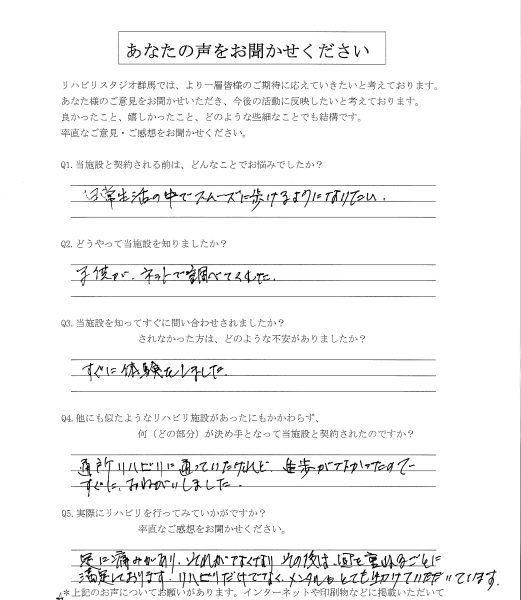 あなたの声をお聞かせください
リハビリスタジオ群馬では、より一層皆様のご期待に応えていきたいと考えております。
あなた様のご意見をお聞かせいただき、今後の活動に反映したいと考えております。
良かったこと、嬉しかったこと、どのような些細なことでも結構です。
率直なご意見・ご感想をお聞かせください。
Q1.当施設と契約される前は、どんなことでお悩みでしたか？
日常生活の中でスムーズに歩けるようになりたい。
Q2.どうやって当施設を知りましたか？
子供が、ネットで調べてくれた。
Q3.当施設を知ってすぐに問い合わせされましたか？
されなかった方は、どのような不安がありましたか？
すぐに体験をしました。
Q4.他にも似たようなリハビリ施設があったにもかかわらず、
何（どの部分）が決め手となって当施設と契約されたのですか？
通所リハビリに通っていたけれど、進歩がなかったので
すぐに、おねがいしました。
Q5.実際にリハビリを行ってみていかがですか？
率直なご感想をお聞かせください。
足に痛みがあり、それがなくなり その後は、回を重ねるごとに
満足しております。リハビリだけでなく、メンタルもとても助けていただいています。
＊上記のお声についてお願いがあります。インターネットや印刷物などに掲載いただいて